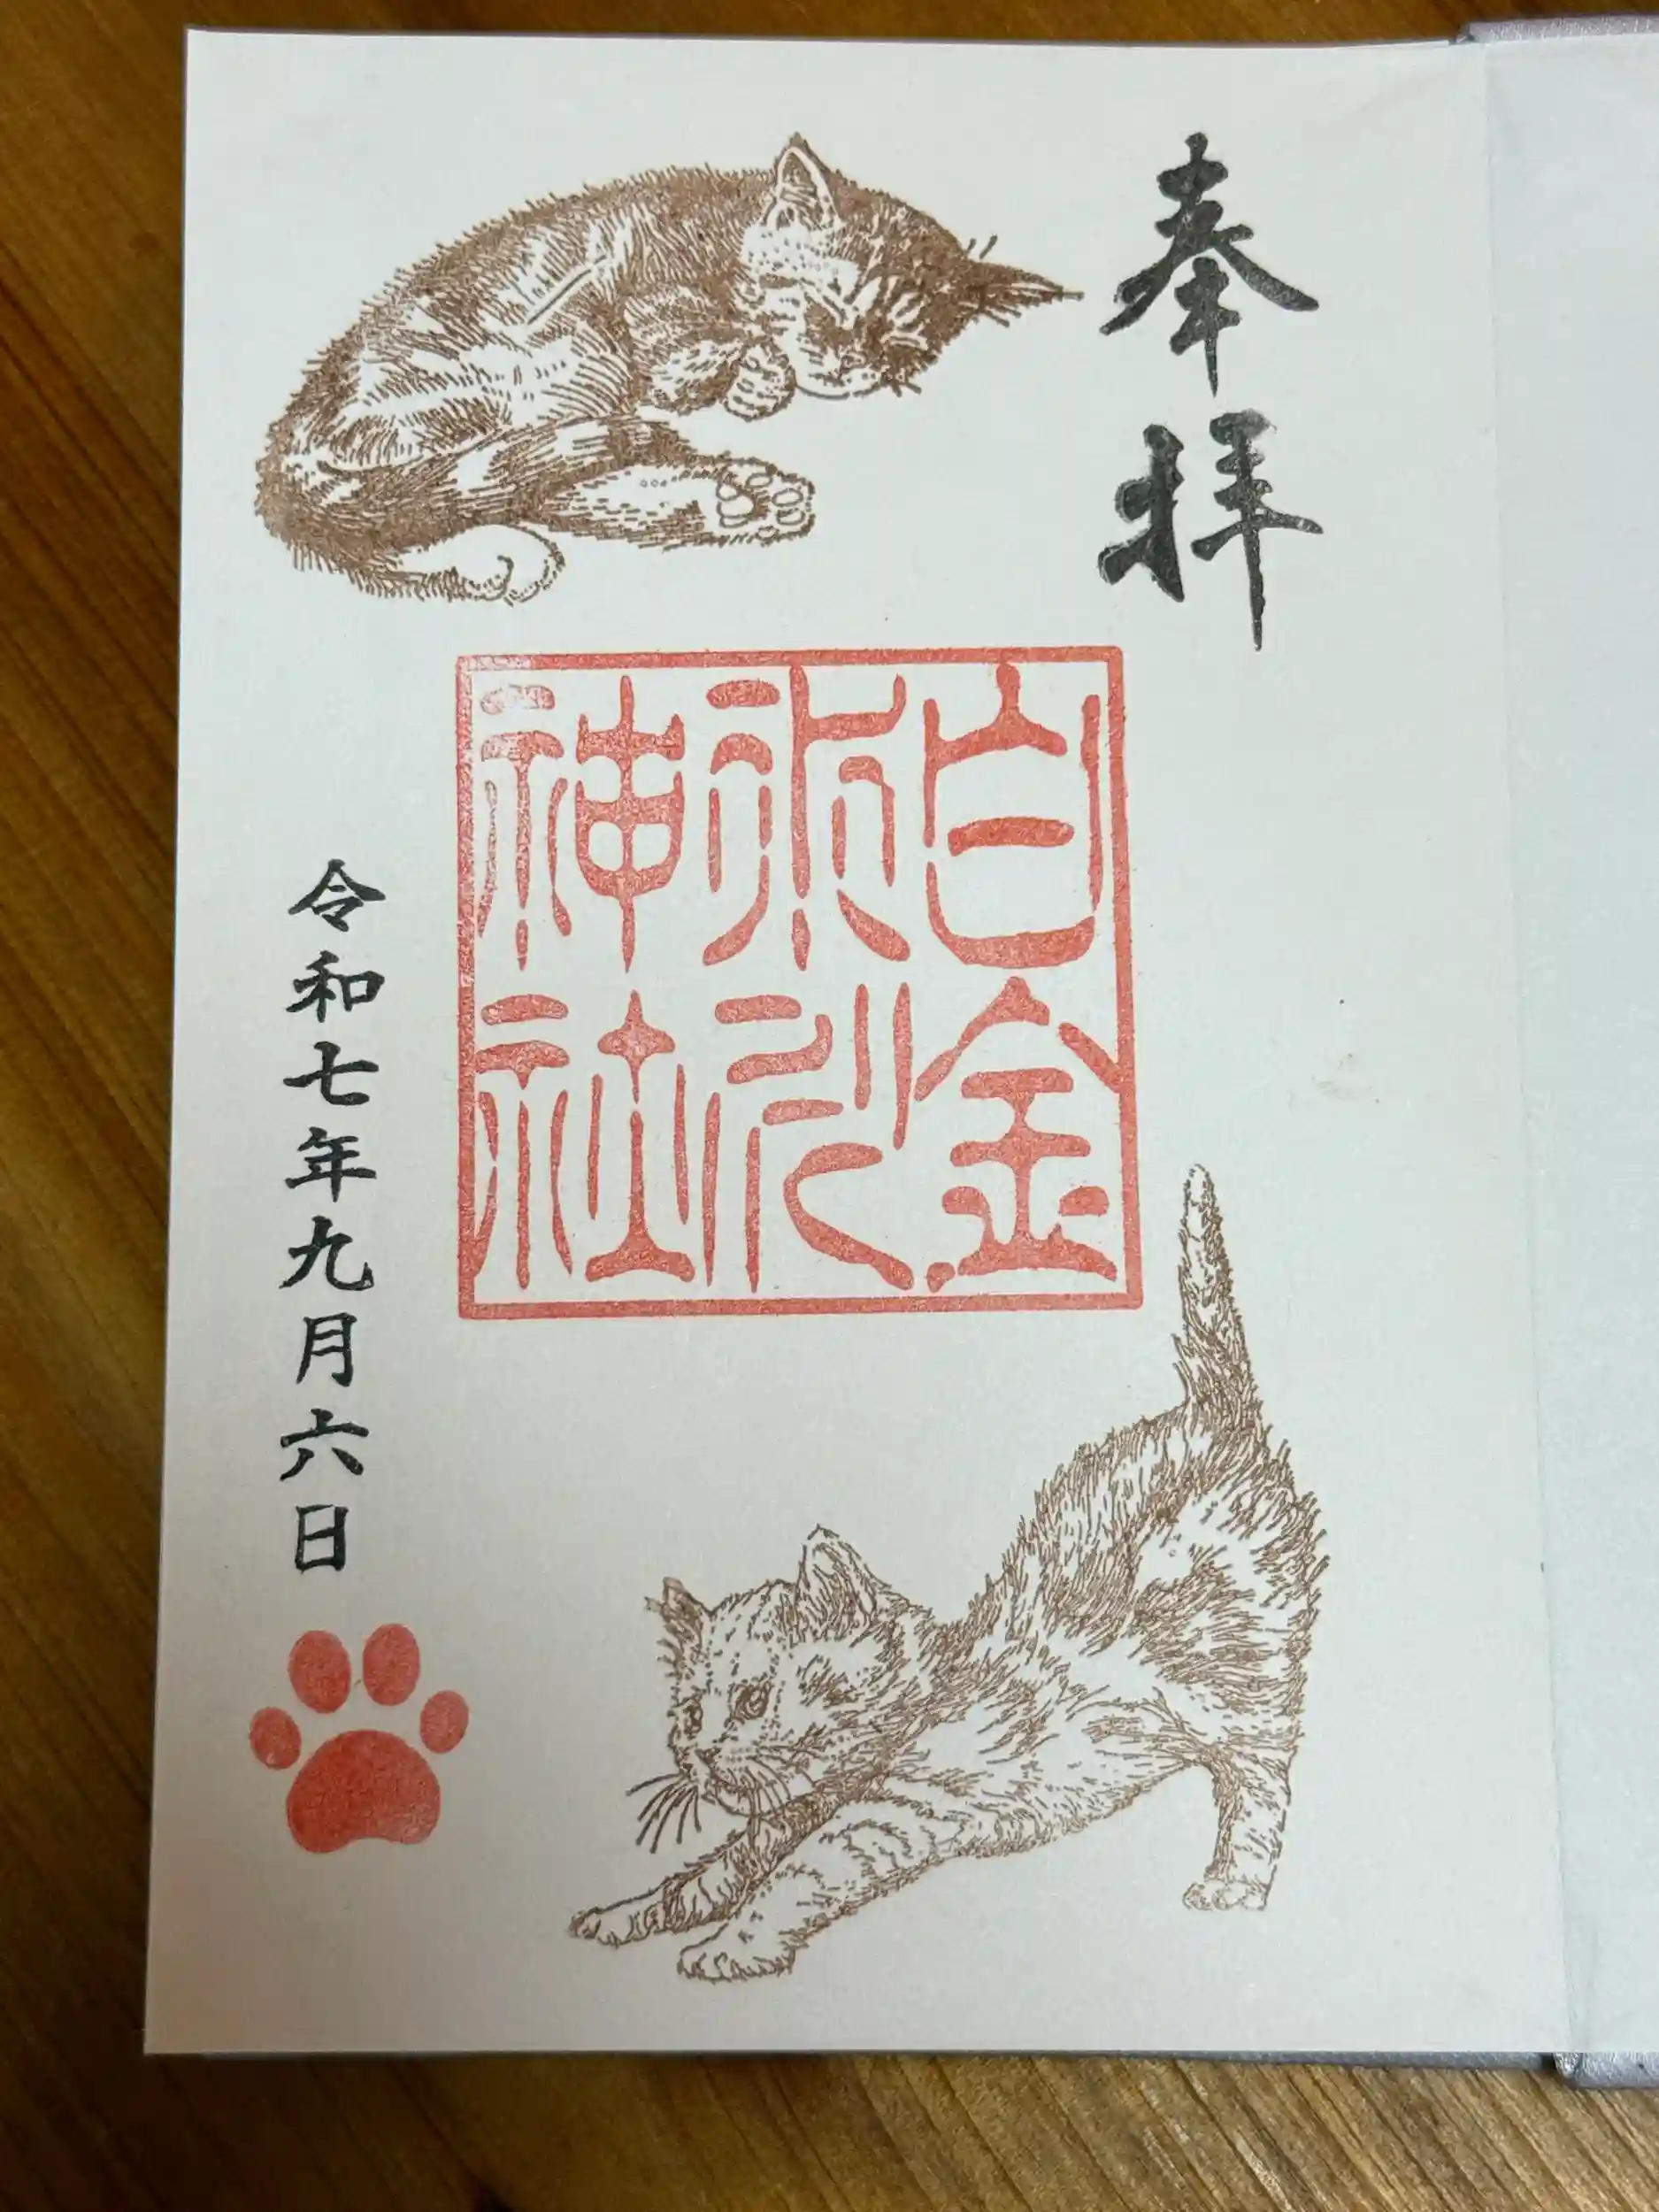 奉拝
白金
氷川
神社
令和七年九月六日